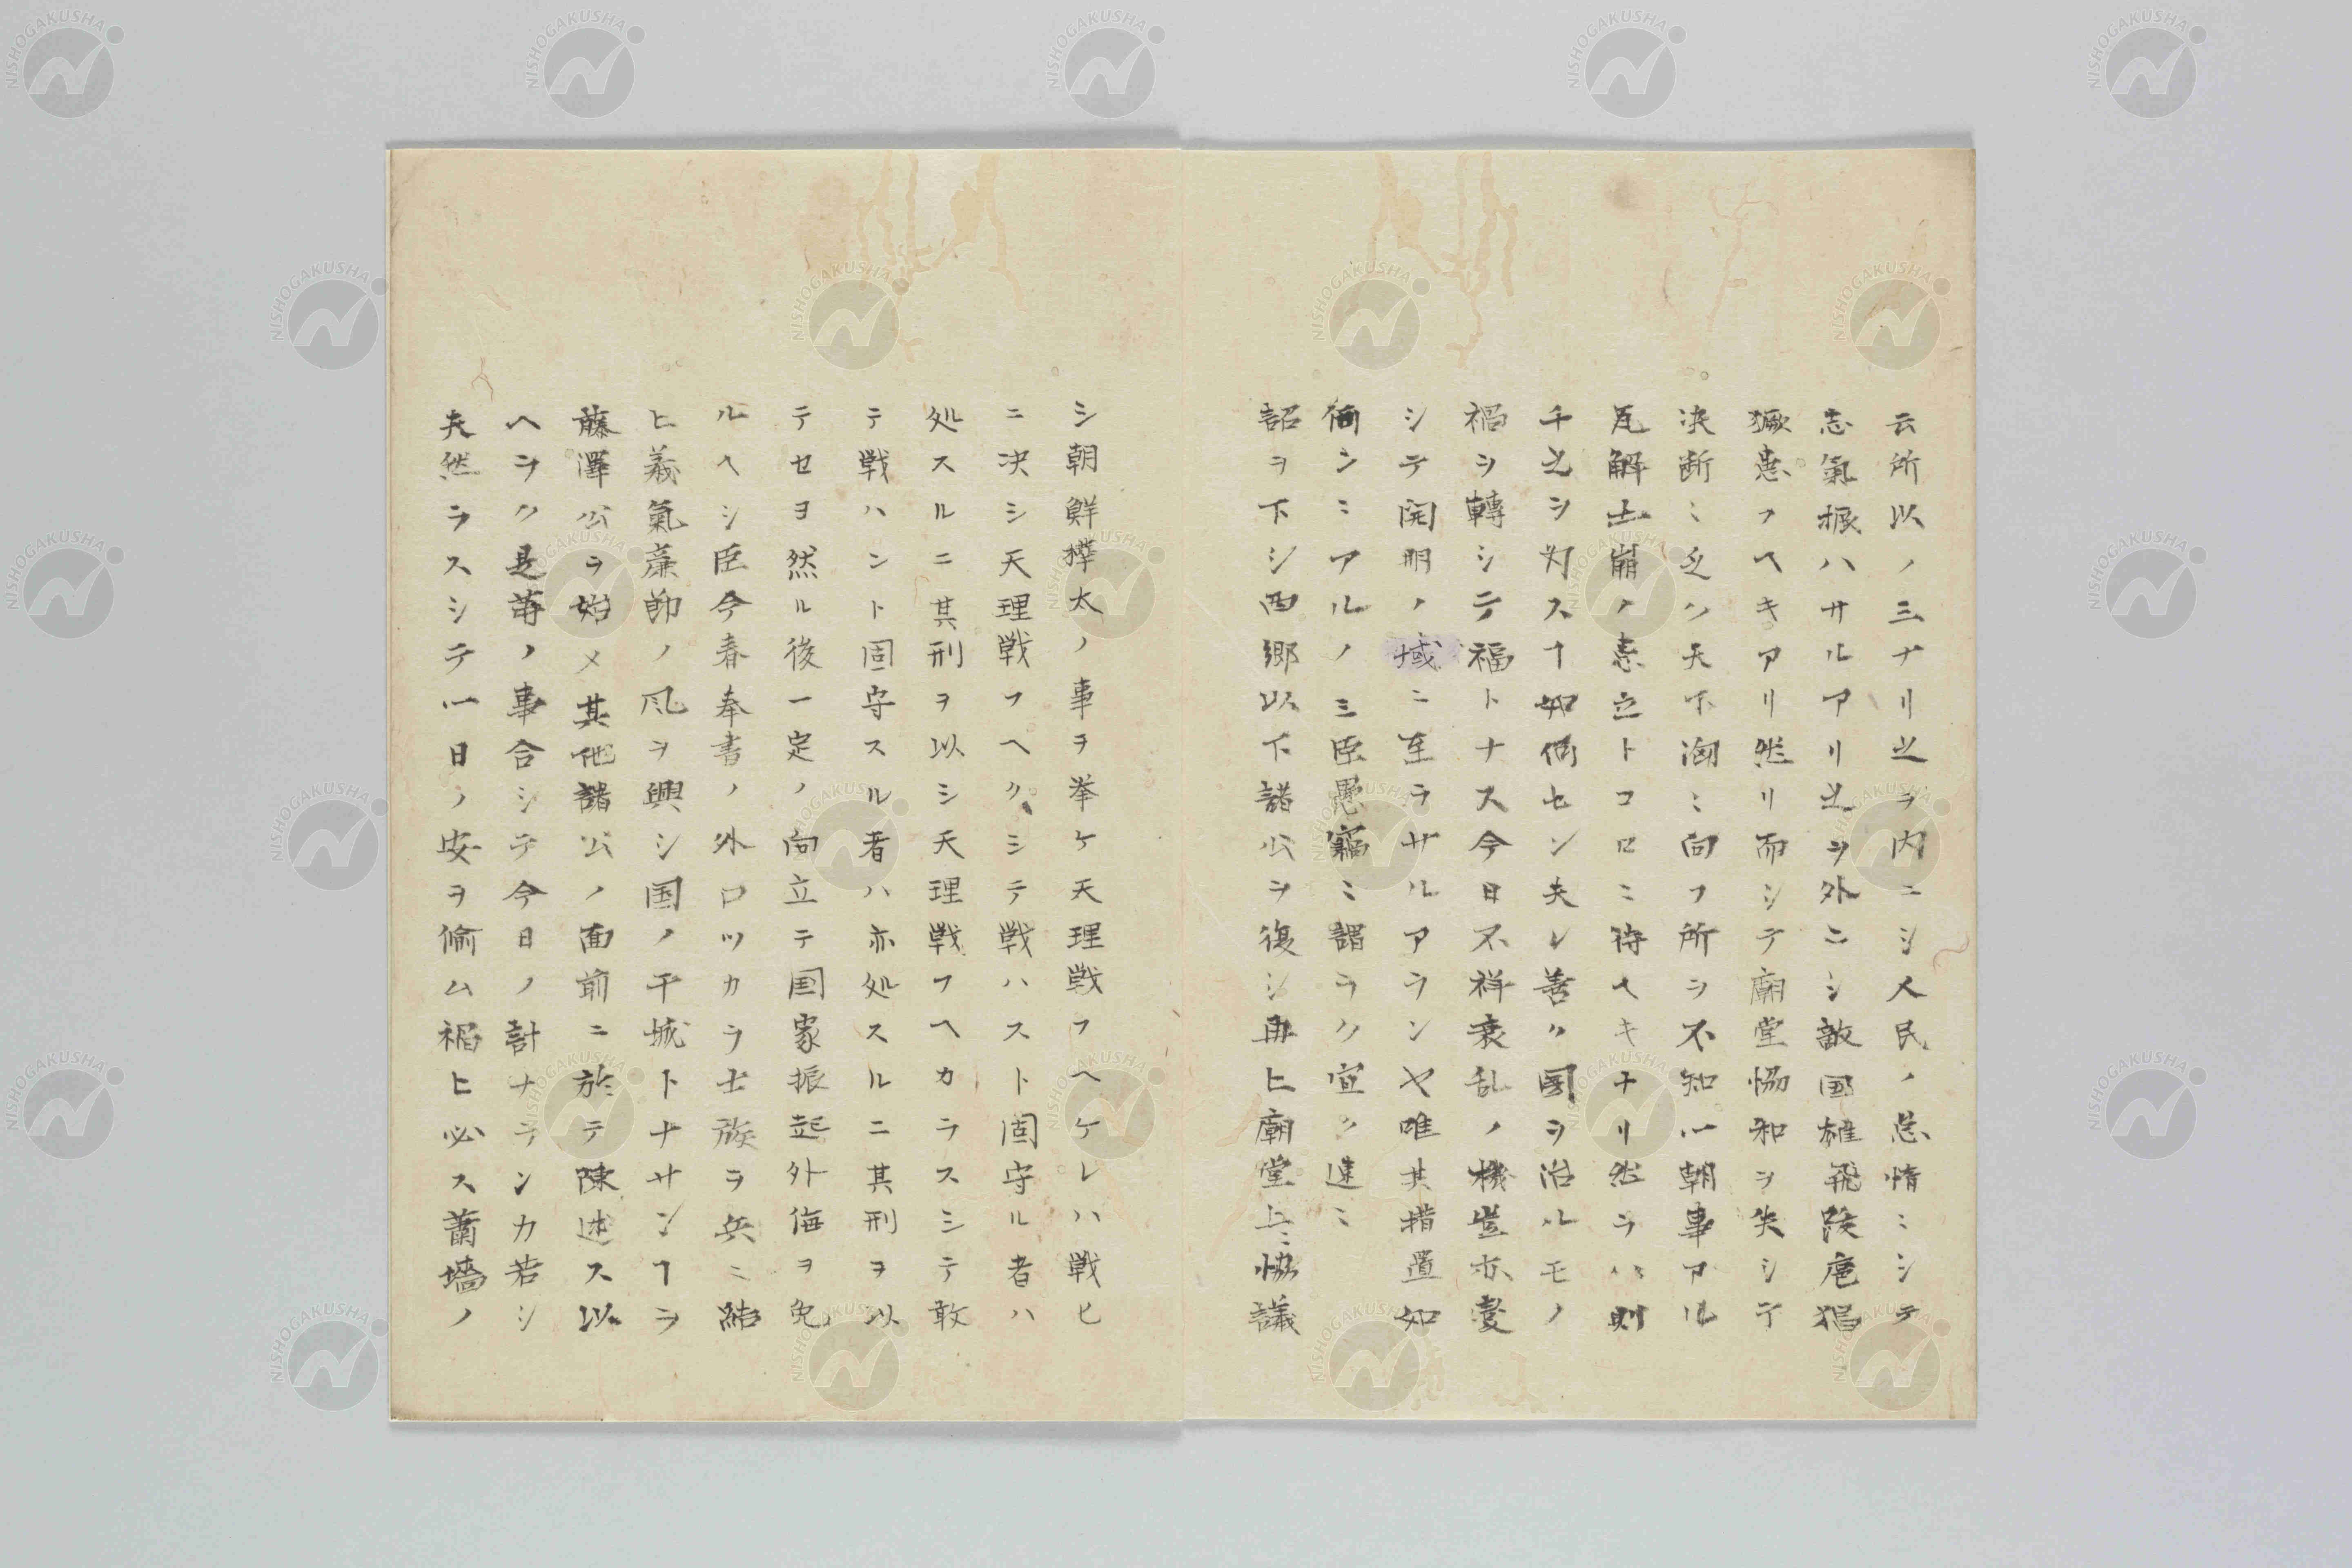 云所以ノ三ナリ之ヲ内ニシ人民ノ怠惰ミシテ
志氣振ハサルアリ之ヲ外ニシ敵国雄飛跋扈猖
獗患フヘキアリ然リ而シテ廟堂恊和ヲ失シテ
决断ミ乏ク天下洶ミ向フ所ヲ不知一朝事アル
瓦解土崩ノ患立トコロミ待ヘキナリ然ラハ則
千之ヲ为スヿ如何セン夫レ善ク国ヲ治ルモノ
禍ヲ轉シテ福トナス今日不祥衰乱ノ機豈亦変
シテ開明ノ域ニ至ラサルアランヤ唯其措置如
何ンミアルノミ臣愚竊ミ謂ラク宜ク速ミ
詔ヲ下シ西郷以下諸公ヲ復シ再ヒ廟堂上ミ恊議
シ朝鮮樺太ノ事ヲ挙ケ天理戦フヘケレハ戦ヒ
ニ决シ天理戦フヘクシテ戦ハスト固守ル者ハ
処スルニ其刑ヲ以シ天理戦フヘカラスシテ敢
テ戦ハント固守スル者ハ亦処スルニ其刑ヲ以
テセヨ然ル後一定ノ向立テ国家振起外侮ヲ免
ルヘシ臣今春奉書ノ外ロツカラ士族ヲ兵ニ結
ヒ義氣廉節ノ風ヲ興シ国ノ干城トナサンヿヲ
藤澤公ヲ始メ其他諸公ノ面前ニ於テ陳述ス以
ヘラク是等ノ事合シテ今日ノ計ナランカ若シ
夫然ラスシテ一日ノ安ヲ偷ム禍ヒ必ス蕭墻ノ
NISHOGAKUSHA